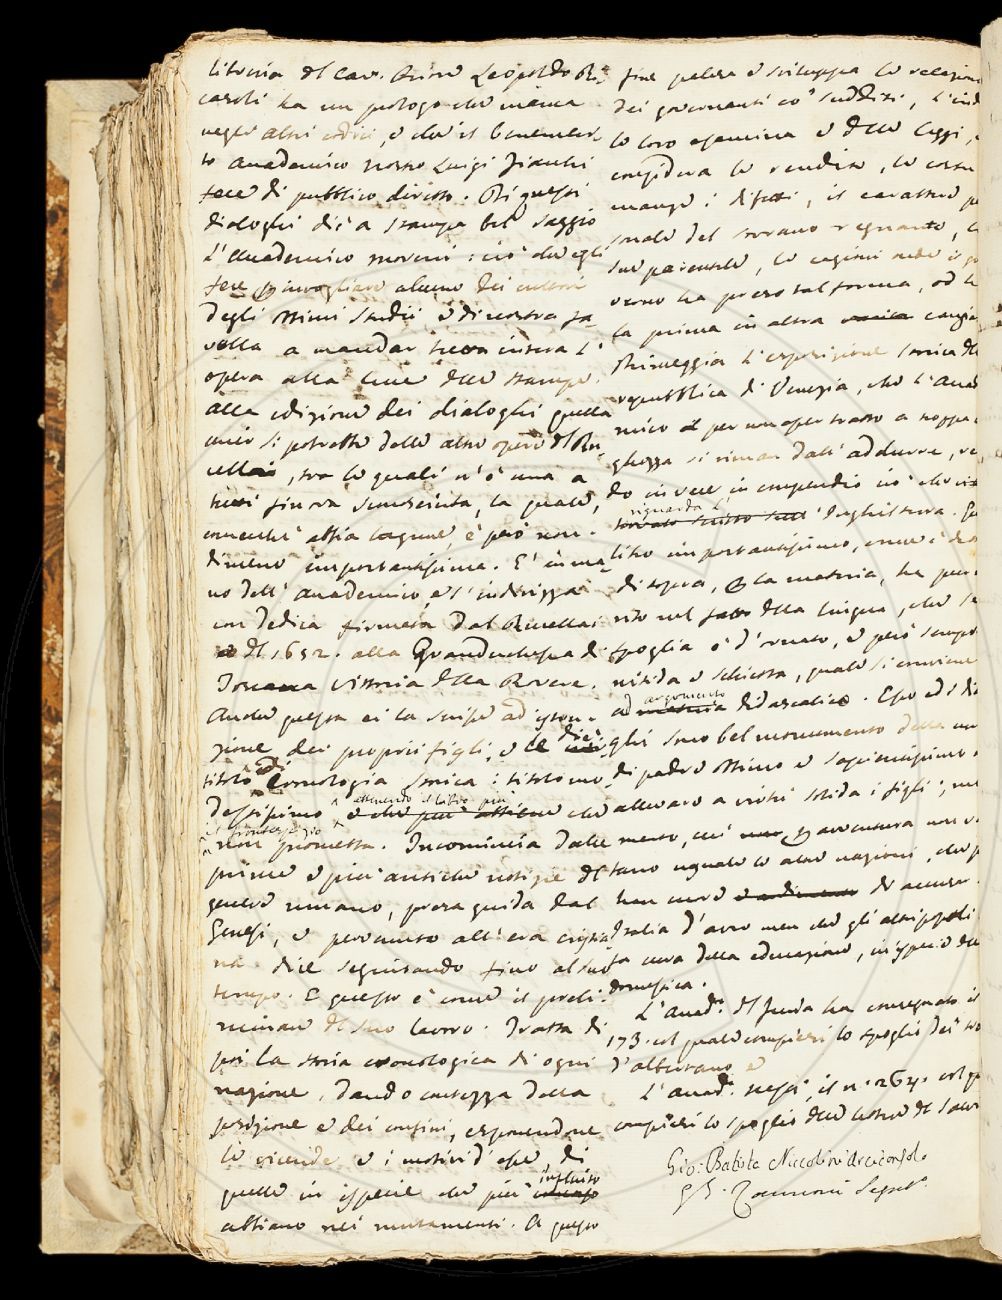 libreria del Cav. Priore Leopoldo Ri-
casoli ha un prologo che manca
negli altri codici, e che il benemeri-
to Accademico nostro Luigi Fiacchi
fece di pubblico diritto. Di questi
dialoghi diè a stampa bel saggio
l'Accademico Moreni: ciò che egli
fece p invogliare alcuno dei cultori
degli ottimi studii e di nostra fa-
vella a mandar intera l'
opera alla luce delle stampe.
alla edizione dei dialoghi quella
unir si potrebbe delle altre opere del Ru-
cellai, tra le quali n'è una a
tutti finora sconosciuta, la quale,
comechè abbia lacune, è però non-
dimeno importantissima. È in ma-
no dell'Accademico, e s'indirizza
con dedica firmata dal Rucellai
del 1652. alla Granduchessa di
Toscana Vittoria della Rovere.
Anche questa ei la scrisse ad istru-
zione dei proprii figli, e le diè
titolo di Cronologia storica: titolo mo-
destissimo, attenendo il libro più che
il frontespizio
non prometta. Incomincia dalle
prime e più antiche notizie del
genere umano, presa guida dal
Genesi, e pervenuto all'era cristia-
na, seguitando fino al suo
tempo. E questo è come il preli-
minare del suo lavoro. Tratta di
poi la storia cronologica di ogni
nazione, dando contezza della
posizione e dei confini, esponendone
le vicende e i motivi d'esse, di
quelle in ispecie che più influito
abbiano nei mutamenti. A questo
fine palesa e sviluppa le relazioni
dei governanti co' sudditi, l'ind
le loro esamina e delle leggi,
considera le rendite, le costu
manze, i difetti, il carattere p
sonale del sovrano regnante,
sue parentele, le cagioni onde il go
verno ha preso tal forma, od ha
la prima in altra cangia
Primeggia l'esposizione storica della
repubblica di Venezia, che l'Acca
mico per non oper troppo a
ghezza si riman dall'addurre,
do invece in compendio ciò che
riguarda l'
Inghilterra.
libro importantissimo, come è
di sopra, p la materia, ha pur
rito nel fatto della lingua, che se
spoglia è d'ornato, è però sempre
nitida e schietta, quale si conviene
ad argomento didascalico. Esso ed i dia
ghi sono bel monumento della
di padre ottimo e sapientissimo
allevare a virtù solida i figli;
mento, cui p avventura non v
tano uguale le altre nazioni, che p
han mere di accusar
Italia d'aver men che gli altri popoli
ta cura della educazione, in ispecie della
domestica.
L'Accad.o Del Furia ha consegnato il
173. col quale compiesi lo spoglio dei
d'Albertano, e
L'Accad.o il n.o 264. col qu
compiesi lo spoglio delle lettere di Salv
Gio: Batista Niccolini Arciconsolo
G.B. Zannoni Segret.o